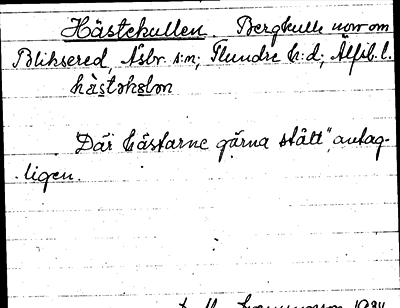 Hästekullen. Bergkulle norr om
Bliksered, Åsbr. s:n; Flundre h:d; Älfsb. l.
hästəkəlon
"Där hästarne gärna stått", antag-
ligen.